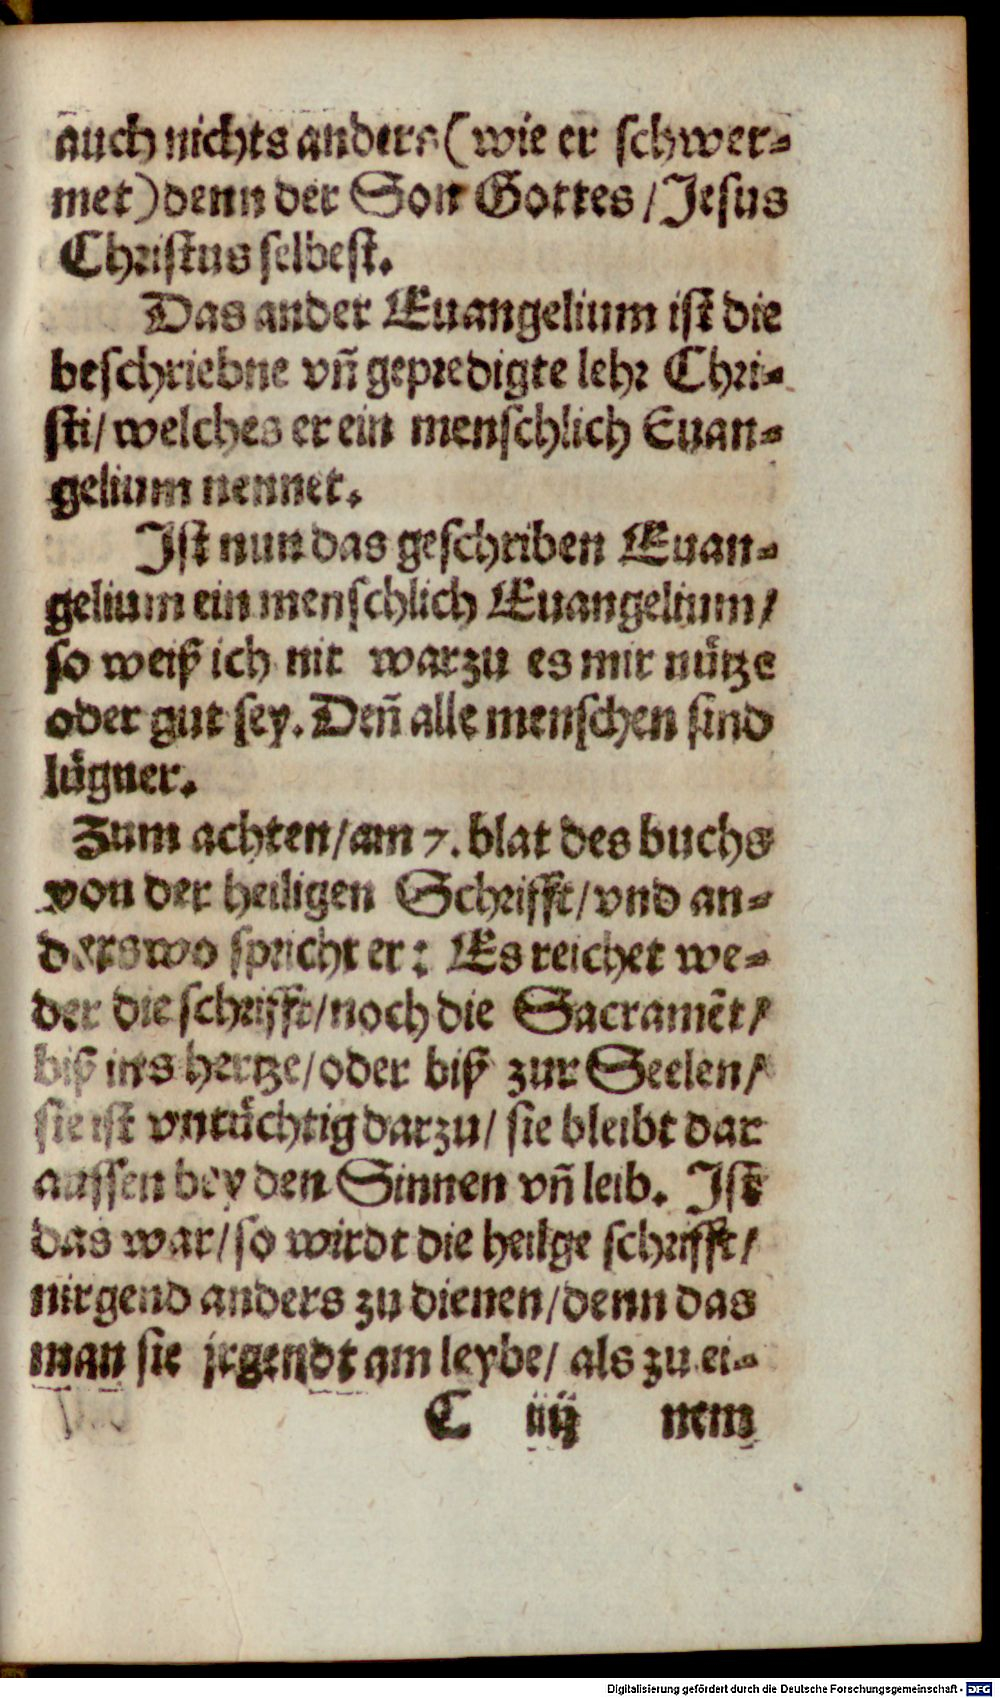 auch nichts anders (wie er schwer-
met) denn der Son Gottes / Jesus
Christus selbest.
Das ander Euangelium ist die
beschriebne vñ gepredigte lehr Chri-
sti / welches er ein menschlich Euan-
gelium nennet.
Ist nun das geschriben Euan-
gelium ein menschlich Euangelium /
so weiß ich nit warzu es mir nütze
oder gut sey. Deñ alle menschen sind
lügner.
Zum achten / am 7. blat des buchs
von der heiligen Schrifft / vnd an-
derswo spricht er: Es reichet we-
der die schrifft / noch die Sacramẽt /
biß ins hertze / oder biß zur Seelen /
sie ist vntüchtig darzu / sie bleibt dar
aussen bey den Sinnen vñ leib. Ist
das war / so wirdt die heilge schrifft /
nirgend anders zu dienen / denn das
man sie jrgendt am leybe / als zu ei-
C iiij nem
Digitalisierung gefördert durch die Deutsche Forschungsgemeinschaft - DFG